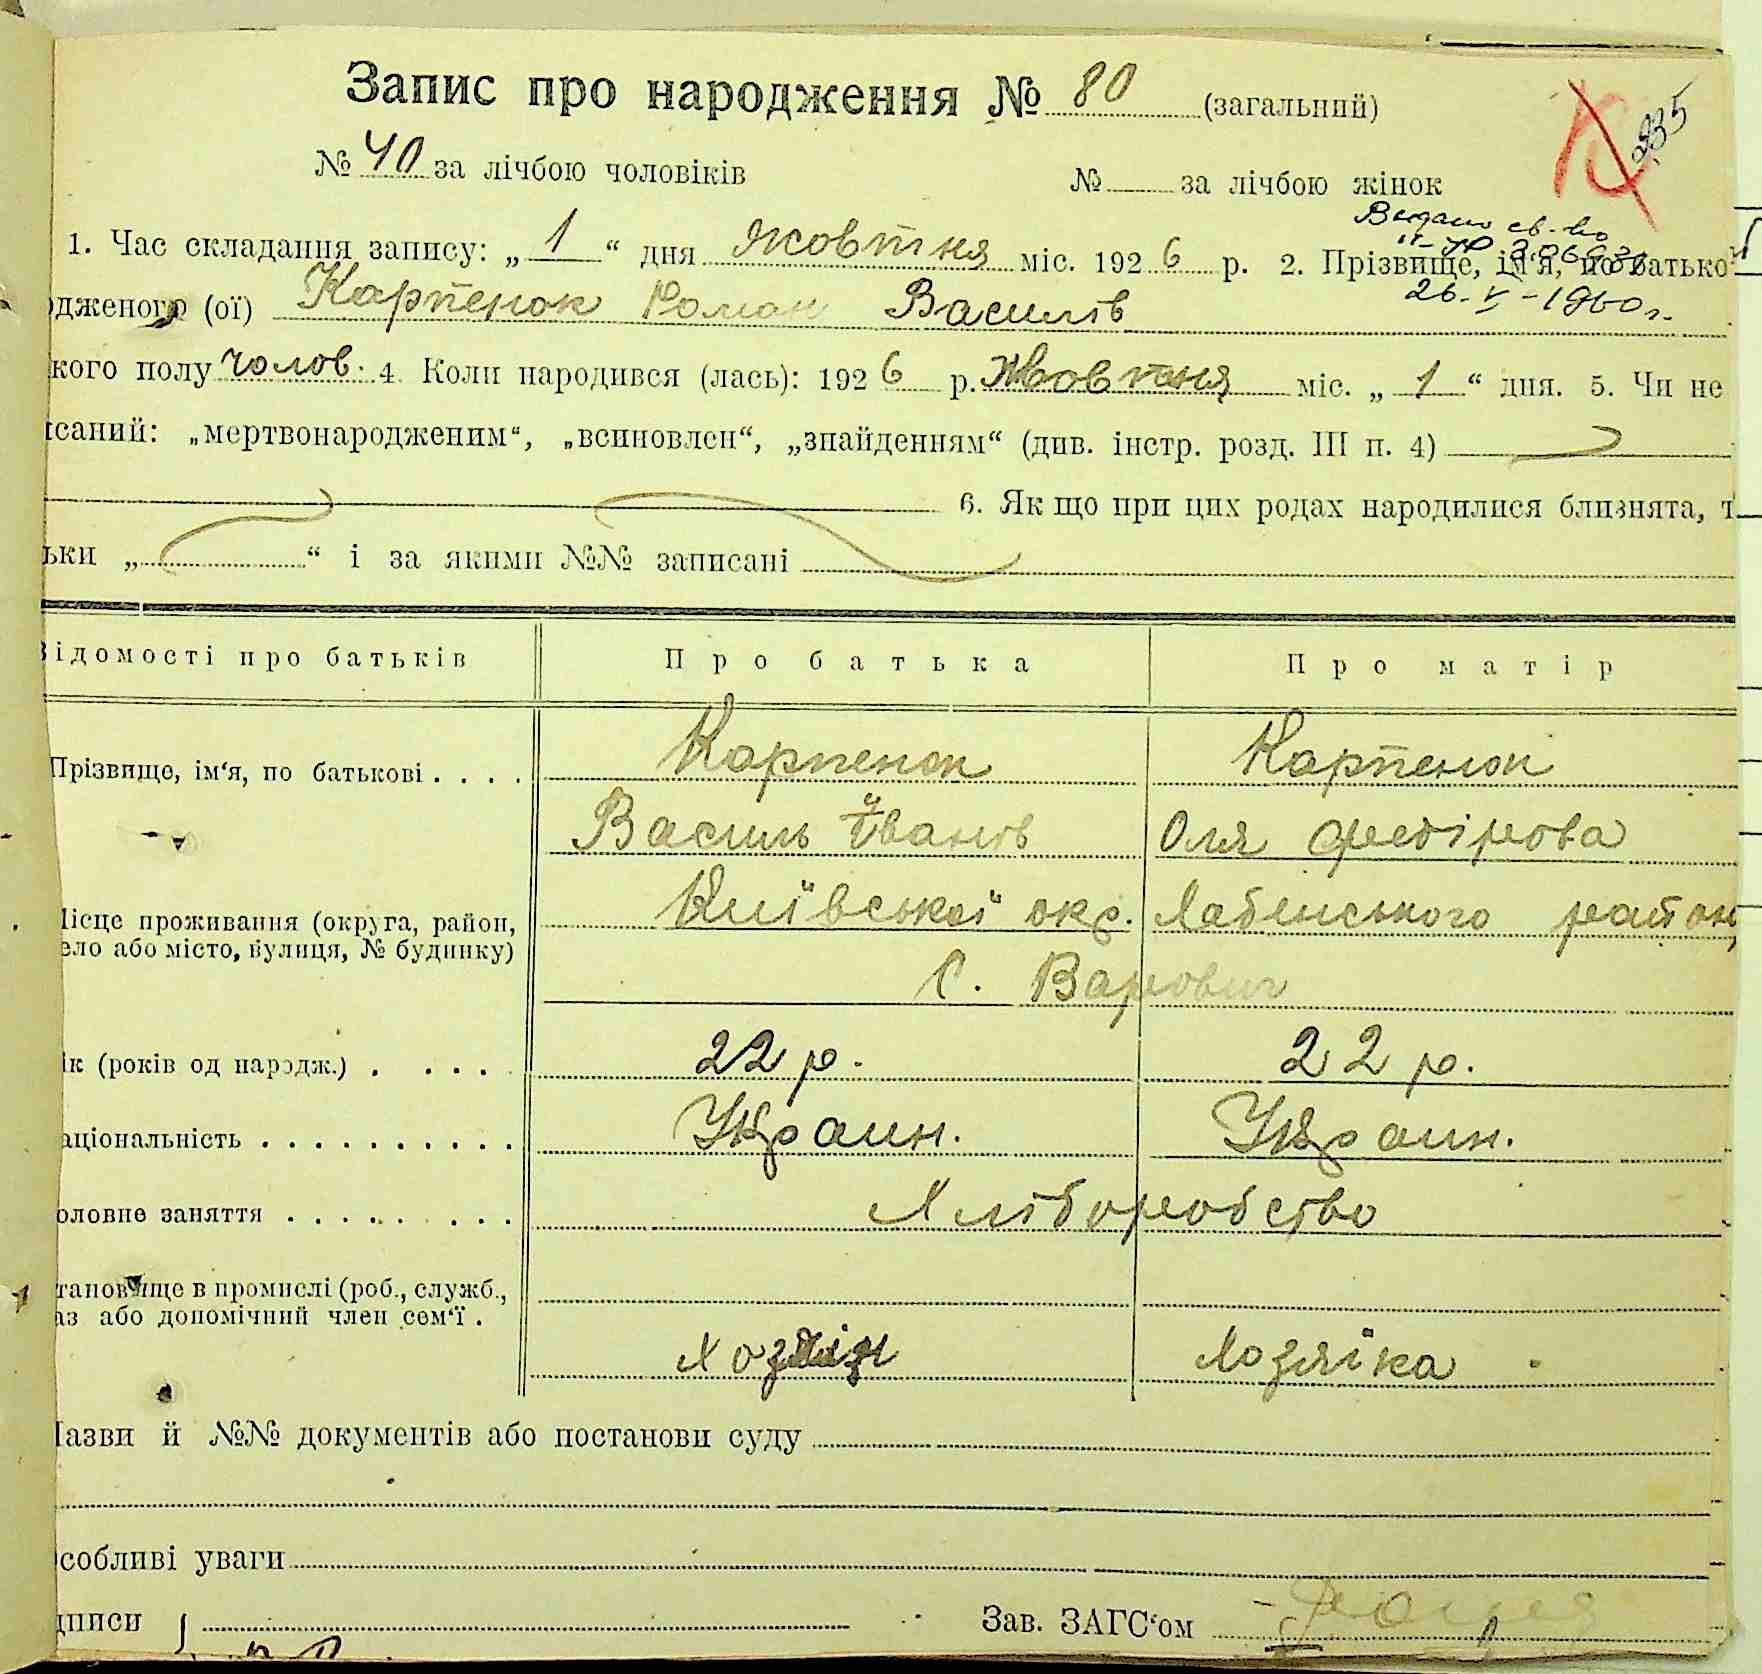 Запис про народження № 80 (загальний)
№ 40 за лічбою чоловіків № за лічбою жінок
835
Видано св-во
26-V-1960 г.
1. Час складання запису: „ 1 “ дня жовтня міс. 192 6 р. 2. Прізвище, ім'я, по батько
одженого (ої) Карпенок Роман Василів
кого полу чолов. 4. Коли народився (лась): 192 6 р. Жовтня міс. „ 1 “ дня. 5. Чи не
исаний: „мертвонародженим“, „всиновлен“, „знайденням“ (див. інстр. розд. III п. 4)
6. Як що при цих родах народилися близнята, т
ьки „ “ і за якими №№ записані
Відомості про батьків Про батька Про матір
Прізвище, ім‘я, по батькові . . . . Карпенок Карпенок
Василь Іванів Оля Федірова
Місце проживання (округа, район, село або місто, вулиця, № будинку) Київської окр. Лабенського район
С. Варовичі
ік (років од народж.) . . . . 22 р. 22 р.
аціональність . . . . . . . . . . Украин. Украин.
оловне заняття . . . . . . . . Хліборобство
тановище в промислі (роб., служб.,
аз або допомічний член сем‘ї .
Хозяїн Хозяїка
Назви й №№ документів або постанови суду
собливі уваги
дписи Зав. ЗАГС‘ом